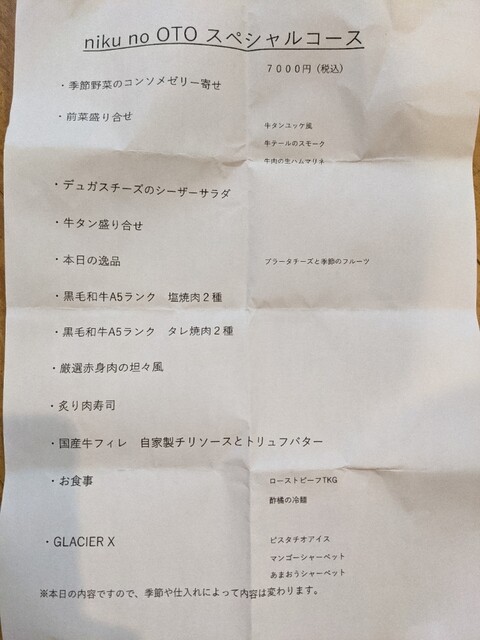 niku no OTO スペシャルコース
7000円（税込）
・季節野菜のコンソメゼリー寄せ
・前菜盛り合せ
牛タンユッケ風
牛テールのスモーク
牛肉の生ハムマリネ
・デュガスチーズのシーザーサラダ
・牛タン盛り合せ
・本日の逸品
ブラータチーズと季節のフルーツ
・黒毛和牛A5ランク　塩焼肉２種
・黒毛和牛A5ランク　タレ焼肉２種
・厳選赤身肉の坦々風
・炙り肉寿司
・国産牛フィレ　自家製チリソースとトリュフバター
・お食事
ローストビーフTKG
酢橘の冷麺
・GLACIER X
ピスタチオアイス
マンゴーシャーベット
あまおうシャーベット
※本日の内容ですので、季節や仕入れによって内容は変わります。